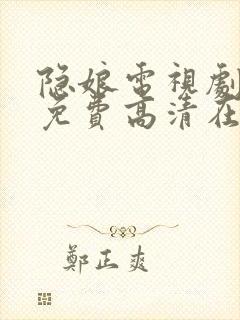 隐娘電視劇
免費高清在
鄭正爽